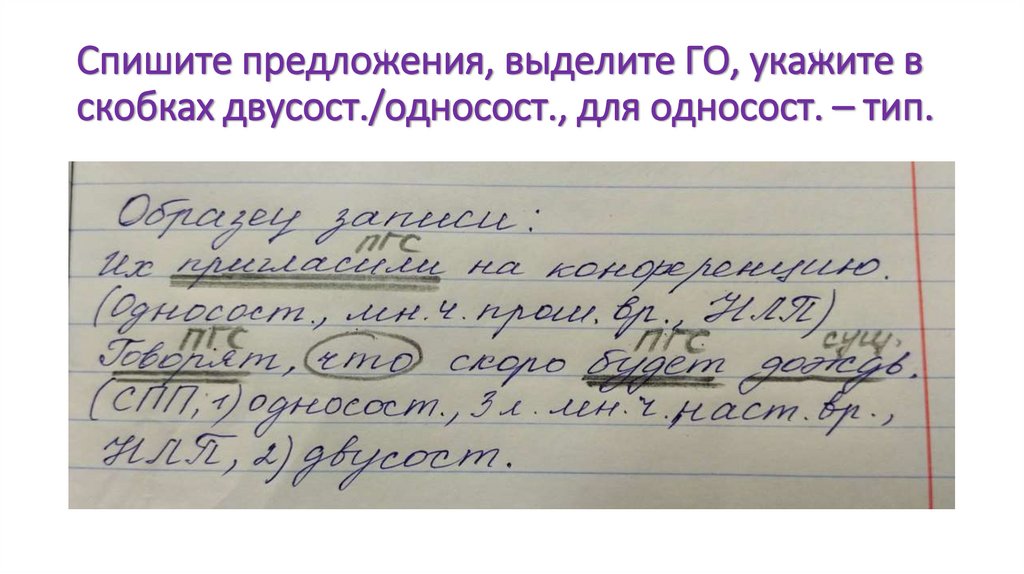 Спишите предложения, выделите ГО, укажите в
скобках двусост./односост., для односост. – тип.
Образец записи:
ПГС
Их пригласили на конференцию.
(Односост., мн.ч. прош. вр., НЛП)
ПГС ПГС сущ.
Говорят, что скоро будет дождь.
(СПП, 1) односост., 3 л. мн.ч., наст. вр.,
НЛП, 2) двусост.